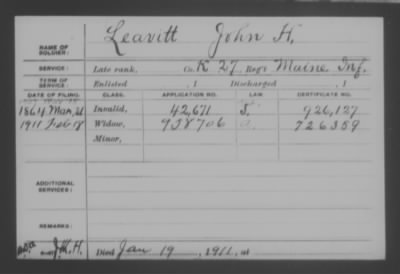 NAME OF SOLDIER: Leavitt John H.
SERVICE: Late rank, Co. K 27 Reg't Maine Inf.
TERM OF SERVICE: Enlisted , 1 Discharged , 1
DATE OF FILING. CLASS. APPLICATION NO. LAW. CERTIFICATE NO.
1864 Mar, 21 Invalid, 42,671 926,127
1911 Feb 8 Widow, 958706 a. 726359
Minor,
ADDITIONAL SERVICES:
REMARKS:
J.H.H. Died Jan 19, 1911, at